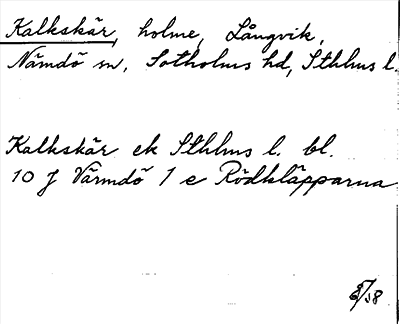 Kalkskär, holme, Långvik,
Nämdö sn, Sotholms hd, Sthlms l.
Kalkskär ek Sthlms l. bl.
10 J Värmdö 1 e Rödkläpparna